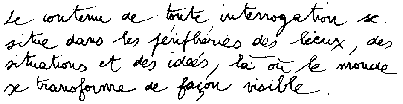 Le contenu de toute interrogation se
situe dans les périphéries des lieux, des
situations et des idées, là où le monde
se transforme de façon visible.